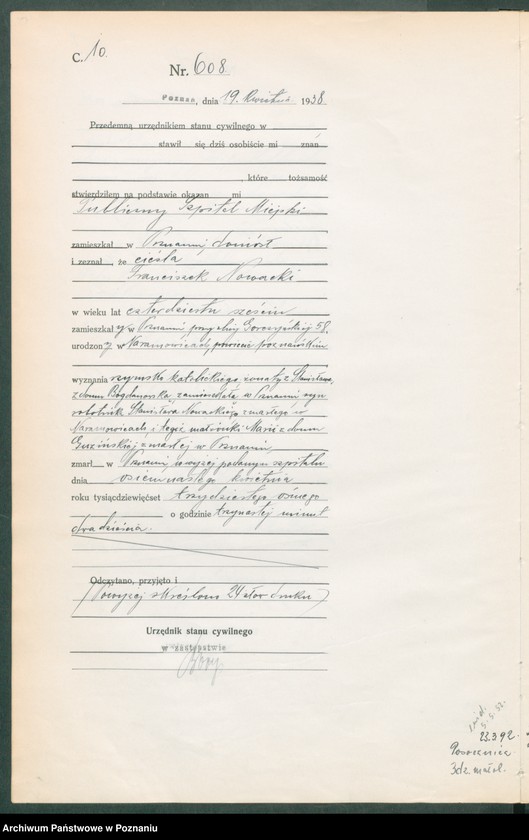 C. 10.
Nr. 608
Poznań, dnia 19. kwietnia 1938
Przedemną urzędnikiem stanu cywilnego w
stawił się dziś osobiście mi znan
, które tożsamość
stwierdziłem na podstawie okazan mi
Publiczny Szpital Miejski
zamieszkał w Poznaniu doniósł
i zeznał, że cieśla
Franciszek Nowacki
w wieku lat czterdziestu sześciu
zamieszkał y w Poznaniu przy ulicy 58,
urodzony w Naramowicach, powiecie poznańskim
wyznania rzymsko katolickiego, żonaty z Stanisławą,
z domu Bogdanowską, zamieszkałą w Poznaniu syn
robotnik Stanisława Nowackiego zmarłego w
Naramowicach i tegoż małżonki Marii z domu
zmarłej w Poznaniu
zmarł w Poznaniu w wyżej podanym szpitalu
dnia osiemnastego kwietnia
roku tysiącdziewięćset trzydziestego ósmego
o godzinie trzynastej minut
dwadzieścia.
Odczytano, przyjęto i
(Powyżej skreślono 24 słów druku)
Urzędnik stanu cywilnego
w zastępstwie
23.3.92.
3dz. małol.
Archiwum Państwowe w Poznaniu